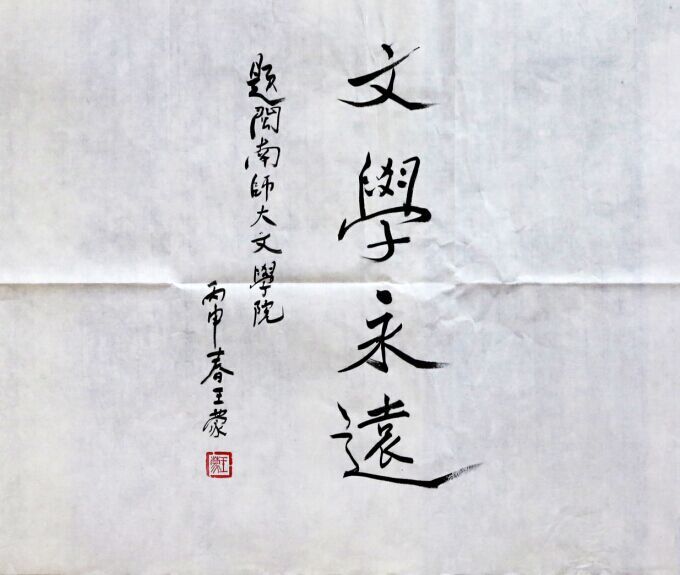 文學永遠
題閩南師大文學院
丙申春王蒙
王蒙